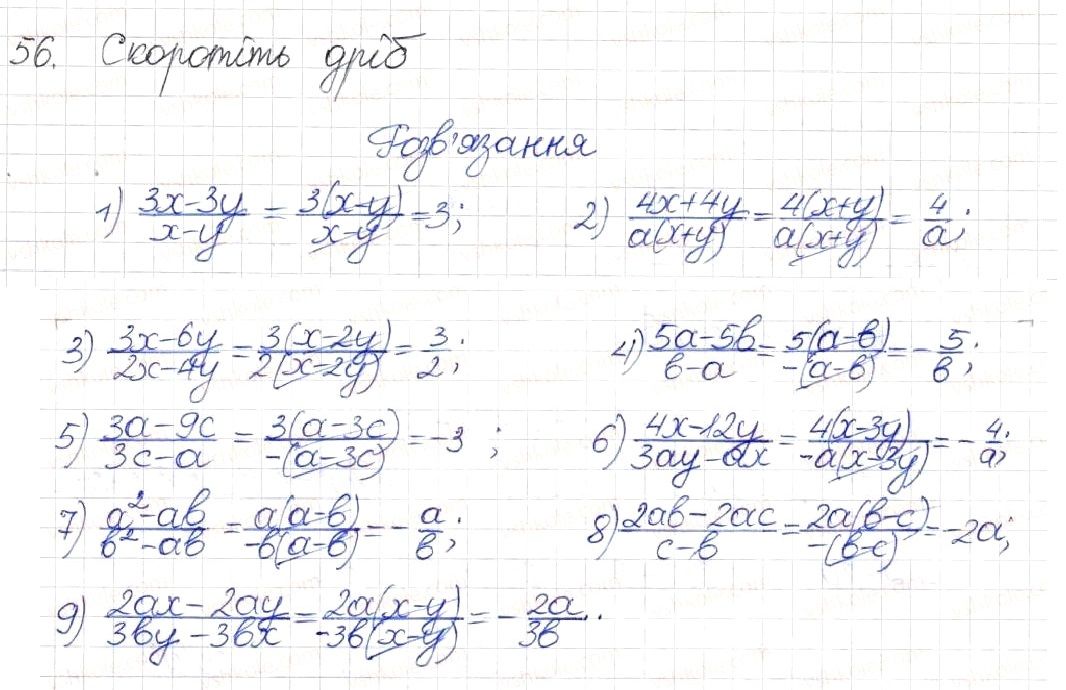 56. Скоротіть дріб
Розв'язання
1) (3x-3y)/(x-y) = 3(x-y)/(x-y) = 3; 2) (4x+4y)/(a(x+y)) = 4(x+y)/(a(x+y)) = 4/a;
3) (3x-6y)/(2x-4y) = 3(x-2y)/(2(x-2y)) = 3/2; 4) (5a-5b)/(b-a) = 5(a-b)/(-(a-b)) = -5/b;
5) (3a-9c)/(3c-a) = 3(a-3c)/(-(a-3c)) = -3; 6) (4x-12y)/(3ay-ax) = 4(x-3y)/(-a(x-3y)) = -4/a;
7) (a²-ab)/(b²-ab) = a(a-b)/(-b(a-b)) = -a/b; 8) (2ab-2ac)/(c-b) = 2a(b-c)/(-(b-c)) = -2a;
9) (2ax-2ay)/(3by-3bx) = 2a(x-y)/(-3b(x-y)) = -2a/3b.